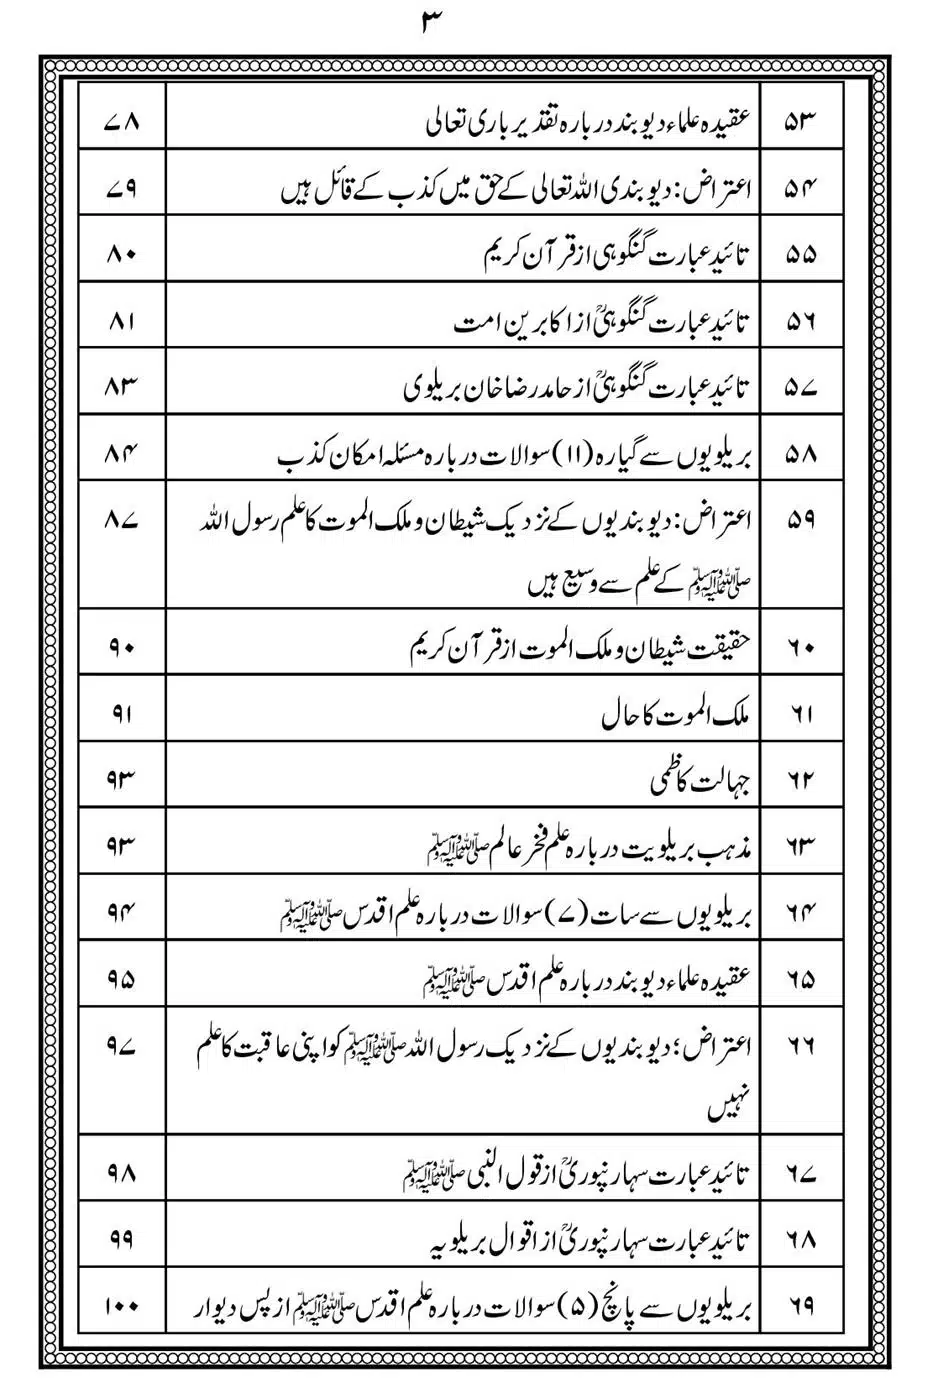 ۳
۵۳ عقیدہ علماء دیوبند دربارہ تقدیر باری تعالی ۷۸
۵۴ اعتراض: دیوبندی اللہ تعالی کے حق میں کذب کے قائل ہیں ۷۹
۵۵ تائید عبارت گنگوہی از قرآن کریم ۸۰
۵۶ تائید عبارت گنگوہیؒ از اکابرین امت ۸۱
۵۷ تائید عبارت گنگوہیؒ از حامد رضا خان بریلوی ۸۳
۵۸ بریلویوں سے گیارہ (۱۱) سوالات دربارہ مسئلہ امکان کذب ۸۴
۵۹ اعتراض: دیوبندیوں کے نزدیک شیطان و ملک الموت کا علم رسول اللہ ۸۷
ﷺ کے علم سے وسیع ہیں
۶۰ حقیقت شیطان و ملک الموت از قرآن کریم ۹۰
۶۱ ملک الموت کا حال ۹۱
۶۲ جہالت کاظمی ۹۳
۶۳ مذہب بریلویت دربارہ علم فخر عالم ﷺ ۹۳
۶۴ بریلویوں سے سات (۷) سوالات دربارہ علم اقدس ﷺ ۹۴
۶۵ عقیدہ علماء دیوبند دربارہ علم اقدس ﷺ ۹۵
۶۶ اعتراض؛ دیوبندیوں کے نزدیک رسول اللہ ﷺ کو اپنی عاقبت کا علم ۹۷
نہیں
۶۷ تائید عبارت سہارنپوریؒ از قول النبی ﷺ ۹۸
۶۸ تائید عبارت سہارنپوریؒ از اقوال بریلویہ ۹۹
۶۹ بریلویوں سے پانچ (۵) سوالات دربارہ علم اقدس ﷺ از پس دیوار ۱۰۰